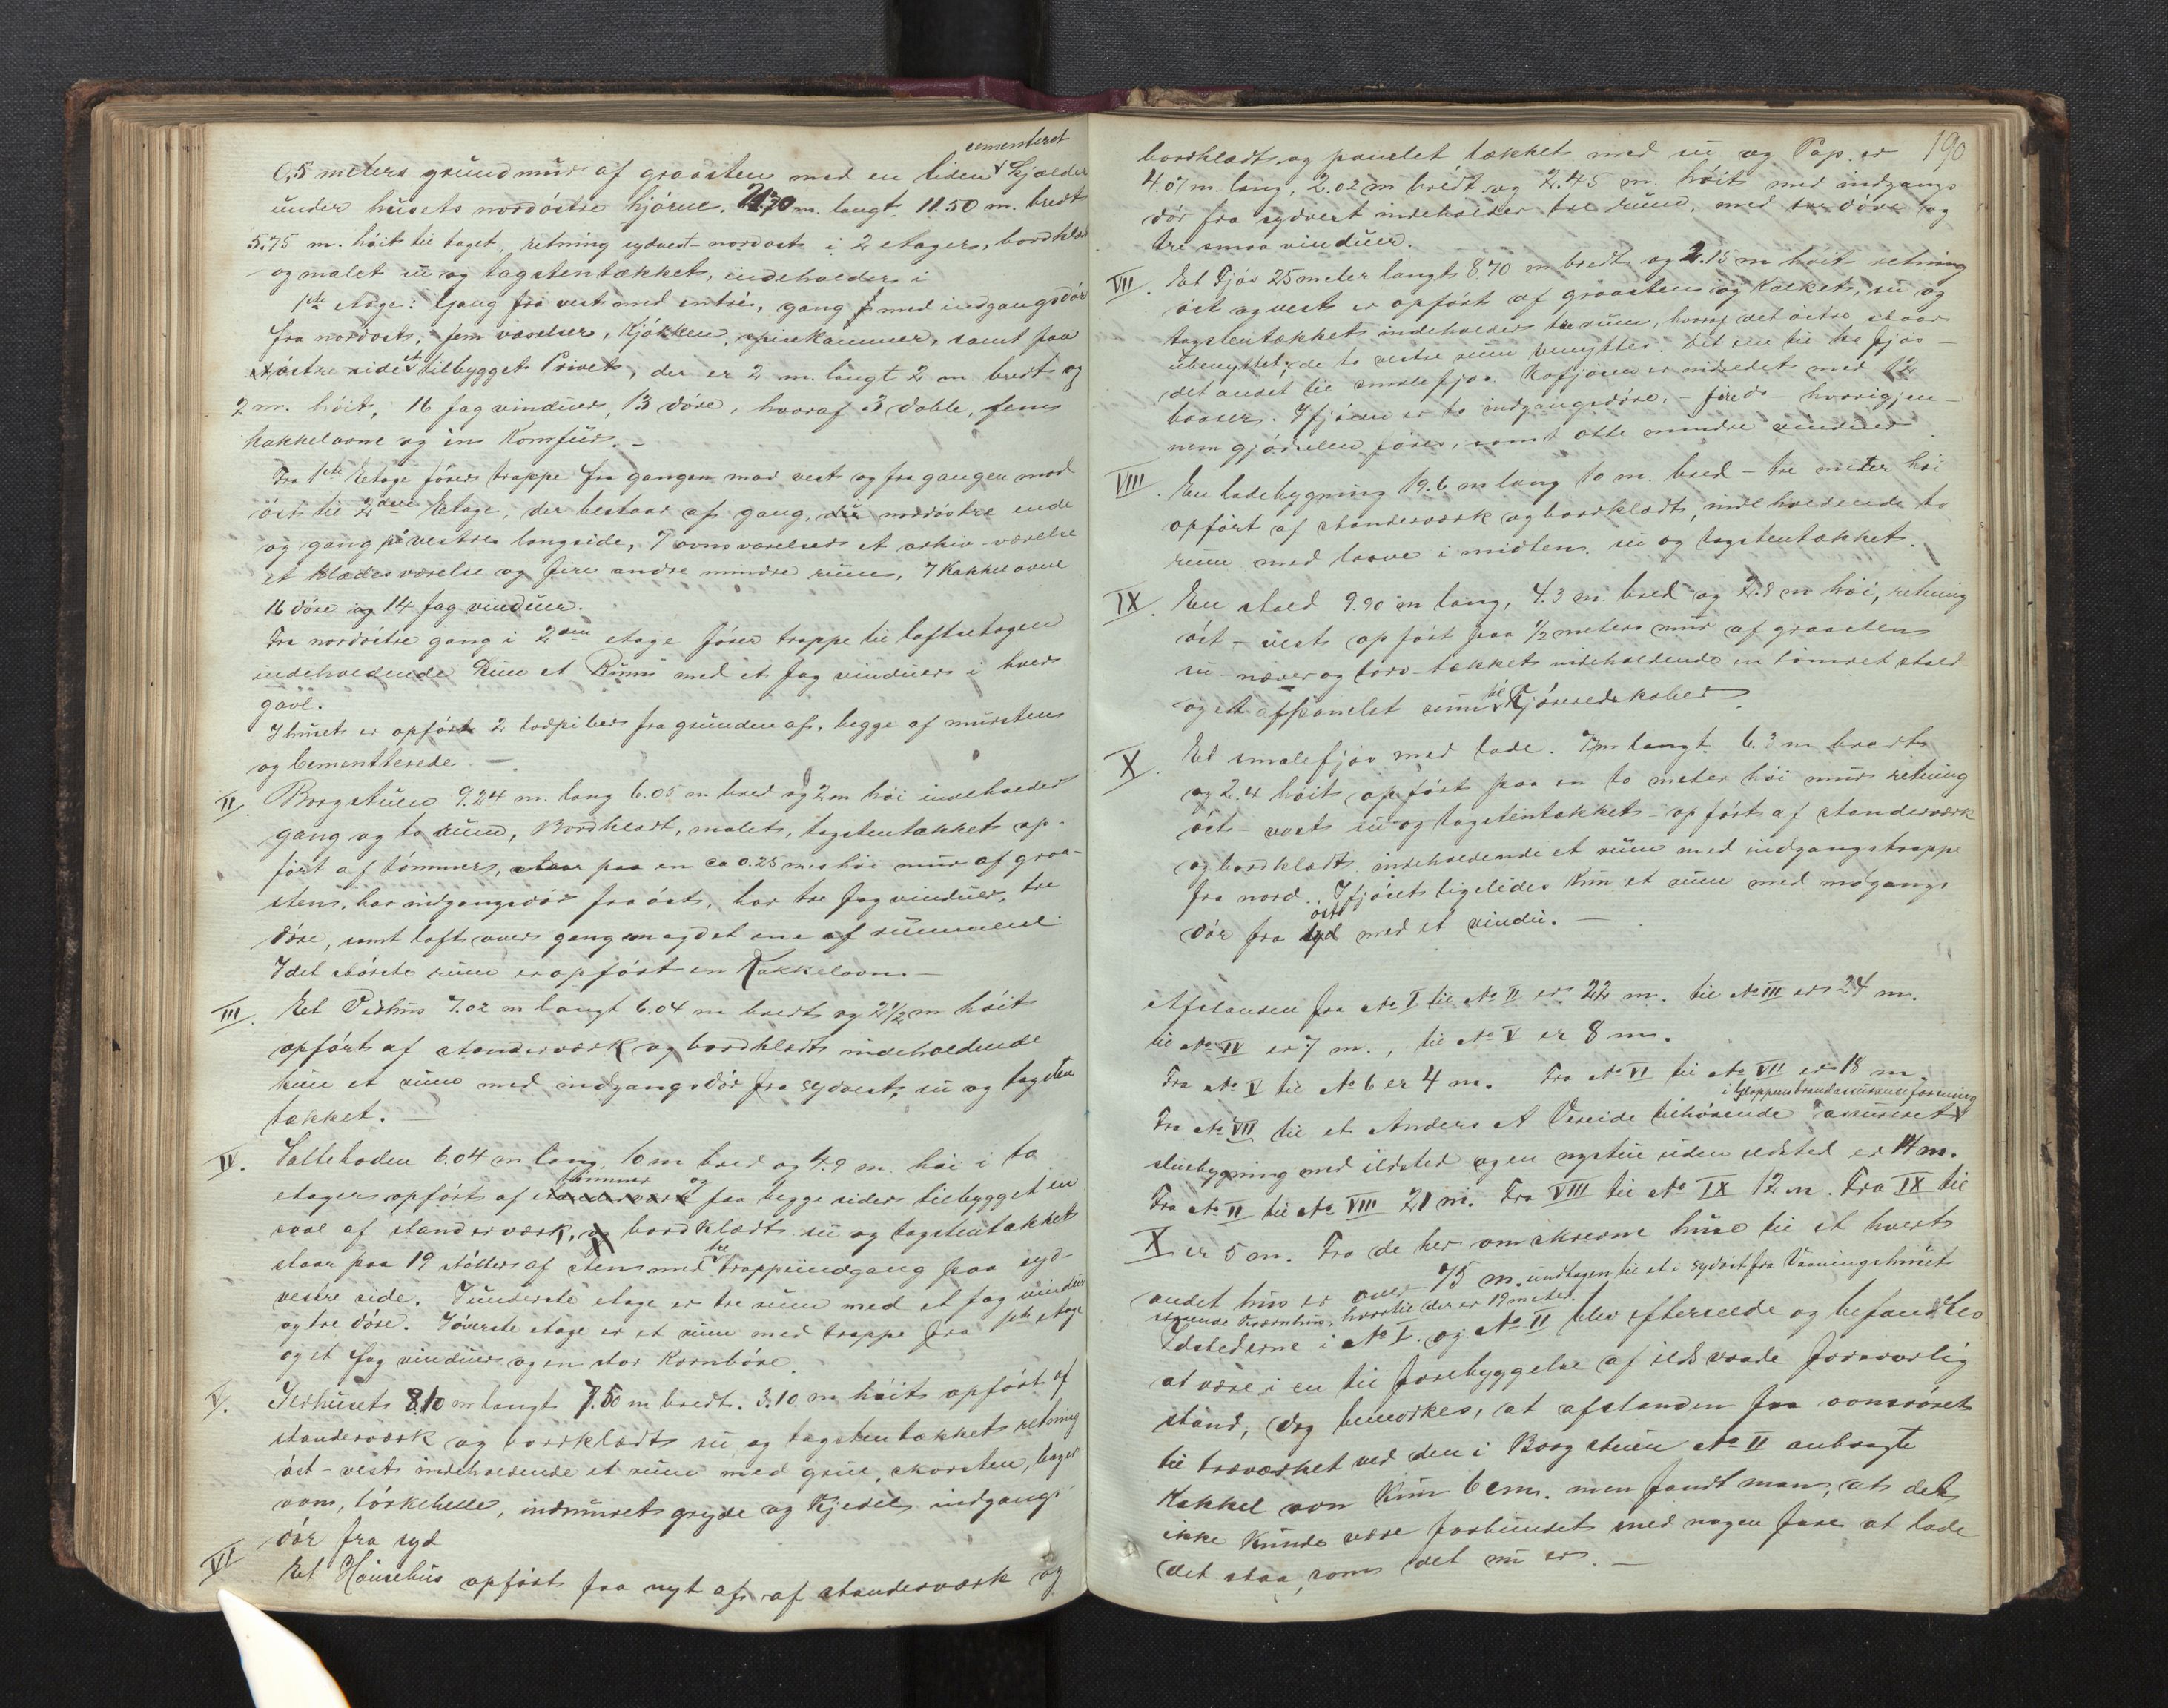 cementeret
0,5 meters grundmur af graasten med en liden kjælder
under husets nordöstre hjörne. 21.70 m. langt. 11.50 m. bredt
5.75 m. höit til taget, retning sydvest-nordost i 2 etager, bordklæt
og malet ny og tagstentækket, indeholder i
1ste etage: Gang fra vest med entre, gang med indgangsdör
fra nordost, fem værelser, Kjökken, spisekammer, samt paa
östre side et tilbygget Privet, der er 2 m. langt 2 m. bredt og
2 m. höit, 16 fag vinduer, 13 döre, hvoraf 3 doble, fem
kakkelovne og en Komfur. -
Fra 1ste Etage förer trappe fra gangen mod vest og fra gangen mod
öst til 2den Etage, der bestaar af gang, i nordöstre ende
og gang på vestre langside, 7 ovnsværelser et arkiv-værelse
et klædesværelse og fire andre mindre rum, 7 Kakkelovne
16 döre og 14 fag vinduer.
Fra nordöstre gang i 2den etage förer trappe til loftsetagen
indeholdende Kun et Rum med et fag vinduer i hver
gavl.
I huset er opfört 2 rorpiber fra grunden af, begge af mursten
og Cementterede. -
II. Borgstuen 9.24 m. lang 6.05 m bred og 2 m höi indeholder
gang og to rum, Bordklædt, malet, tagstentækket op-
fört af tömmer, staar paa en ca 0.25 m.s höi mur af graa-
sten, har indgangsdör fra öst, har tre fag vinduer, tre
döre, samt loft over gangen og det ene af rummene
I det störste rum er opfört en Kakkelovn. -
III. Et Vedhus 7.02 m langt 6.04 m bredt og 2½ m höit
opfört af standerværk og bordklædt indeholdende
kun et rum med indgangsdör fra sydvest, ny og tagsten
tækket. -
IV. Salteboden 6.04 m lang, 10 m bred og 4.9 m. höi i to
tömmer og
etager opfört af standerværk paa begge sider tilbygget en
sval af standerværk, og bordklædt ny og tagstentækket
staar paa 19 stötter af sten med tre trappeindgang paa syd-
vestre side. I underste etage er tre rum med et fag vinduer
og tre döre. I överste etage er et rum med trappe fra 1ste etage
og et fag vinduer og en stor Kornböre.
V. Ildhuset 8.10 m langt 7.50 m bredt. 3.10 m höit opfört af
standerværk og bordklædt ny og tagstentækket retning
öst-vest indeholdende et rum med grue, skorsten, bager
ovn, törkehelle, indmuret gryde og Kjedel, indgangs
dör fra syd
VI Et Hönsehus opfört fra nyt af af standerværk og
190
bordklædt og panelet tækket med ny og Pap er
4.07 m. lang, 2.02 m bredt og 2.45 m. höit med indgangs
dör fra sydvest indeholder tre rum, med tre döre og
tre smaa vinduer.
VII. Et Fjös 25 meter langt 8.70 m bredt og 2.15 m höit retning
öst og vest er opfört af graasten og Kalket, ny og
tagstentækket indeholder tre rum, hvoraf det östre staar
ubenyttet; de to vestre rum benyttes. det ene til ko fjös -
det andet til smalefjös. Kofjösen er indredet med 12
baaser. I fjösene er to indgangsdöre, - fire do - hvorigjen-
nem gjödselen föres, samt otte mindre vinduer
VIII. En ladebygning 19.6 m lang 10 m. bred - tre meter höi
opfört af standerværk og bordklædt, indeholdende to
rum med laave i midten, ny og tagstentækket.
IX. En stald 9.90 m lang, 4.3 m. bred og 2.8 m höi, retning
öst-vest opfört paa ½ meters mur af graasten
ny - næver og torv-tækket indeholdende en tömret stald
og et afpanelet rum til Kjöreredskaber.
X. Et smalefjös med lade. 7 m langt. 6.3 m. bredt
og 2.4 höit opfört paa en to meter höi mur retning
öst-vest ny og tagstentækket - opfört af standerværk
og bordklædt indeholdende et rum med indgangstrappe
fra nord. I fjöset ligeledes Kun et rum med indgangs
dör fra öst syd med et vindu. -
Afstanden fra No I til No II er 22 m. til No III er 24 m.
til No IV er 7 m., til No V er 8 m.
Fra No V til No 6 er 4 m. Fra No VI til No VII er 18 m
i Gloppens brandassuranceforening
Fra No VII til et Anders A Vereide tilhörende assureret
stuebygning med ildsted og en nystue uden ildsted er 14 m.
Fra No II til No VIII 21 m. Fra VIII til No IX 12 m. Fra IX til
X er 5 m. Fra de her omskrevne huse til et hvert
andet hus er over 75 m. undtagen til et i sydöst fra Vaaningshuset
staaende Kværnhus, hvortil der er 19 meter.
Ildstederne i No I. og No II blev efterseede og befandtes
at være i en til forebyggelse af ildsvaade forsvarlig
stand, dog bemærkes, at afstanden fra ovnsröret
til træværket ved den i Borgstuen No II anbragte
Kakkelovn Kun 6 cm. men fandt man, at det
ikke kunde være forbundet med nogen fare at lade
det staa, som det nu er. -